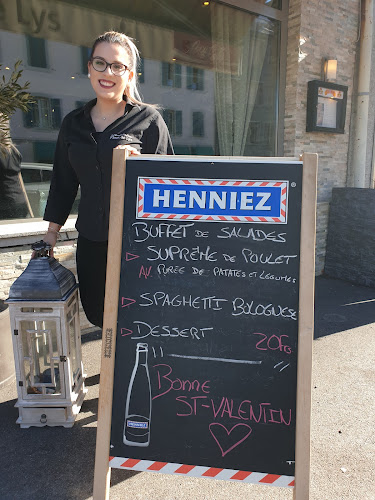 Lys
HENNIEZ
BUFFET DE SALADES
SUPRÊME DE POULET
AV. PURÉE DE PATATES ET LÉGUMES
SPAGHETTI BOLOGNESE
DESSERT 20 Frs
BONNE
ST-VALENTIN
HENNIEZ
HENNIEZ